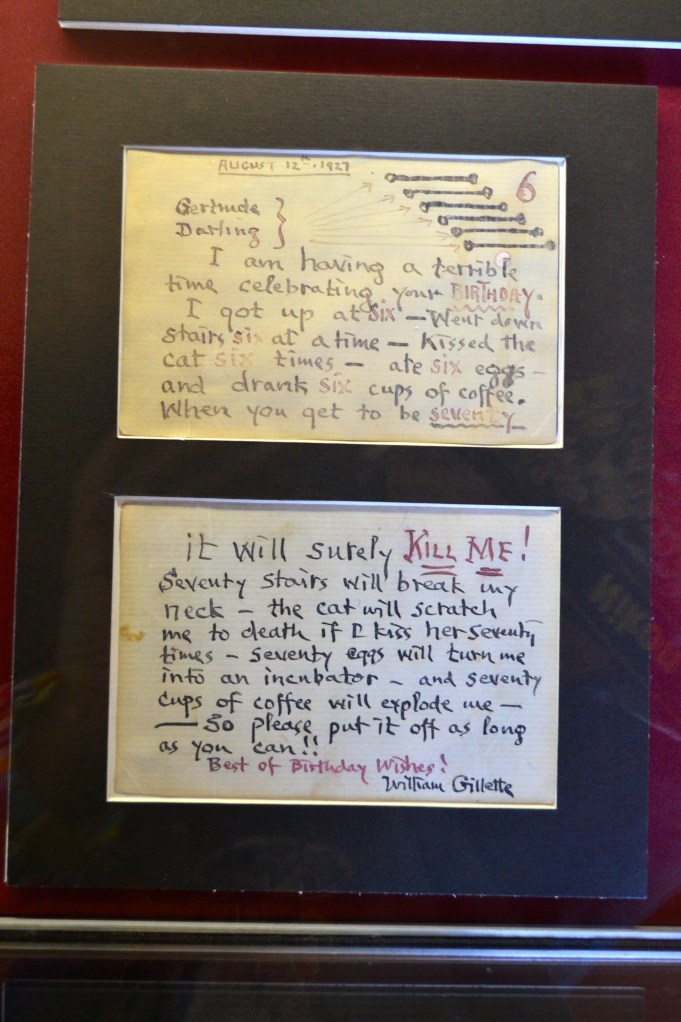 AUGUST 12th. 1927
6
Gertrude
Darling
I am having a terrible
time celebrating your BIRTHDAY.
I got up at six — Went down
stairs six at a time — Kissed the
cat six times — ate six eggs —
and drank six cups of coffee.
When you get to be seventy
it will surely KILL ME!
Seventy stairs will break my
neck — the cat will scratch
me to death if I kiss her seventy
times — seventy eggs will turn me
into an incubator — and seventy
cups of coffee will explode me —
— So please put it off as long
as you can!!
Best of Birthday Wishes!
William Gillette